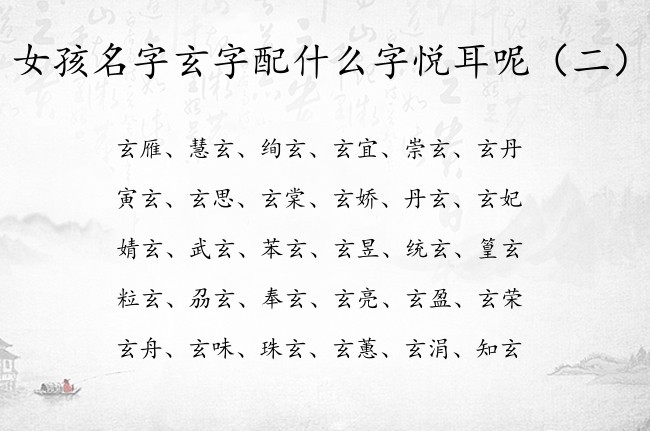 女孩名字玄字配什么字悦耳呢（二）
玄雁、慧玄、绚玄、玄宜、崇玄、玄丹
寅玄、玄思、玄棠、玄娇、丹玄、玄妃
婧玄、武玄、苯玄、玄昱、统玄、篁玄
粒玄、刕玄、奉玄、玄亮、玄盈、玄荣
玄舟、玄味、珠玄、玄蕙、玄涓、知玄